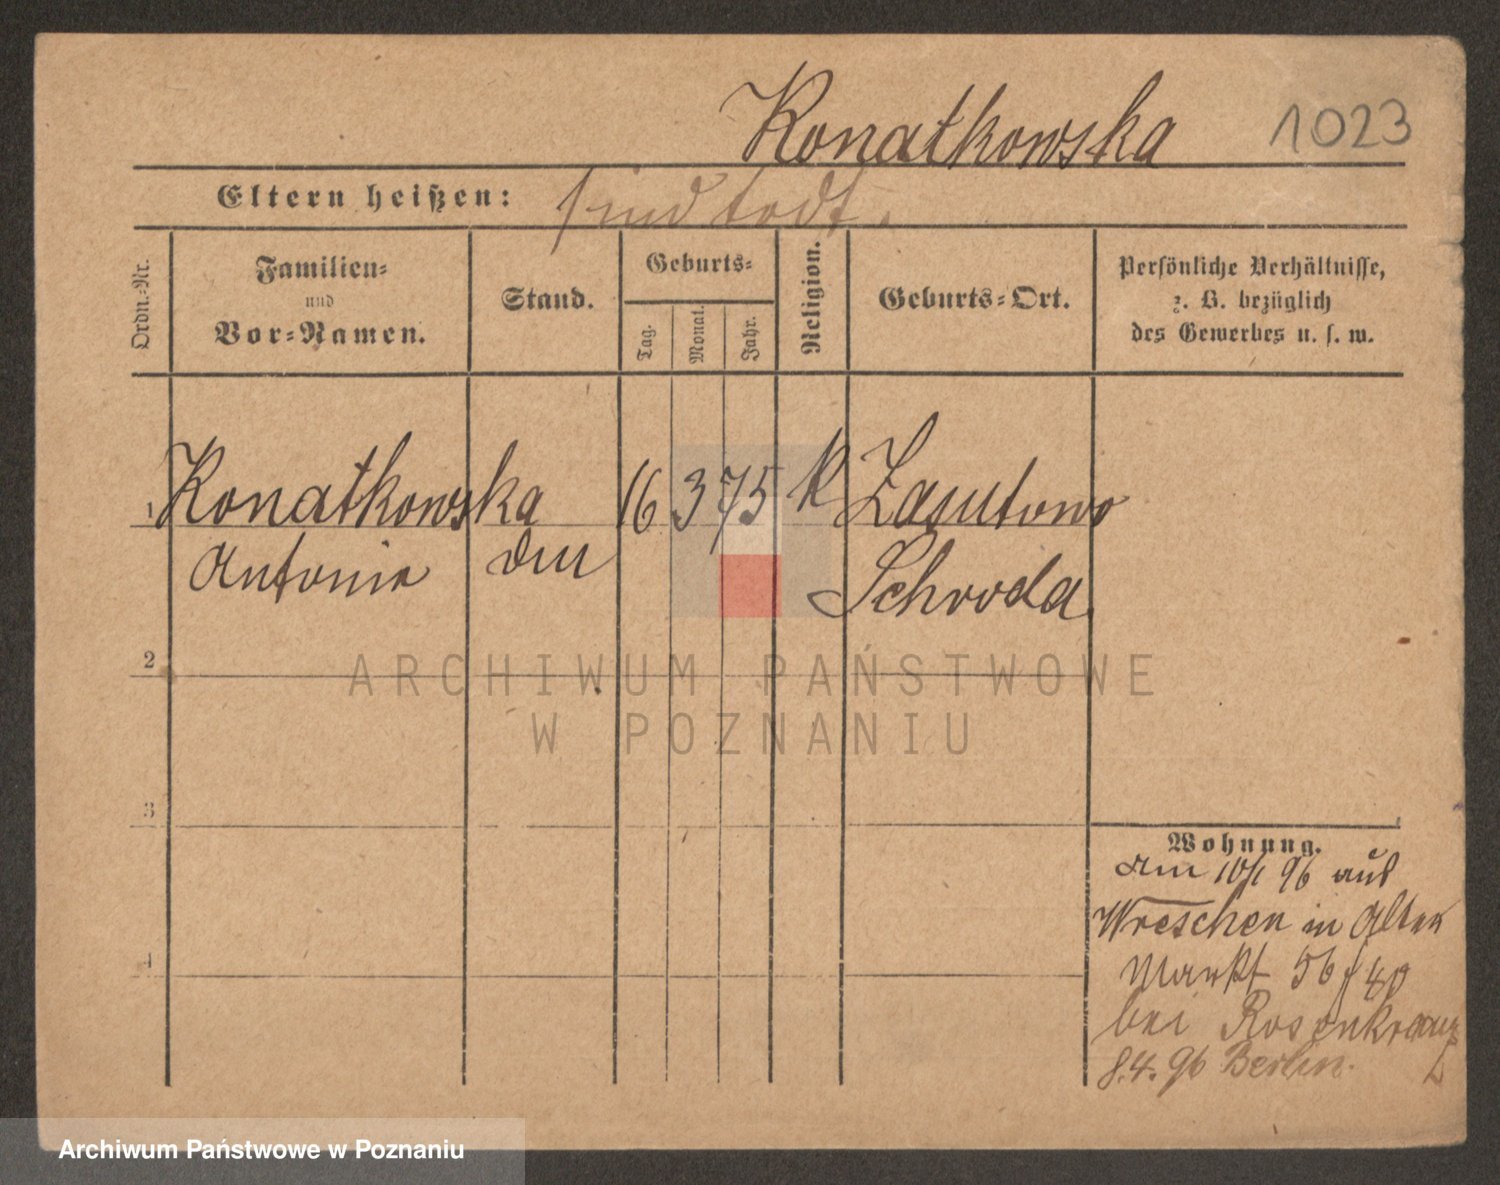 Konatkowska 1023
Eltern heißen: sind todt.
Ordn.-Nr.
Familien-
und
Vor-Namen.
Stand.
Geburts-
Tag.
Monat.
Jahr.
Religion.
Geburts-Ort.
Persönliche Verhältnisse,
z. B. bezüglich
des Gewerbes u. s. w.
1 Konatkowska 16 3 75 k Zasutowo
Antonie Schroda
2
3
4
ARCHIWUM PAŃSTWOWE
W POZNANIU
Wohnung.
am 10/1 96 aus
Wreschen in Alten
Markt 56
bei Rosenkranz
8.4.96 Berlin.
Archiwum Państwowe w Poznaniu